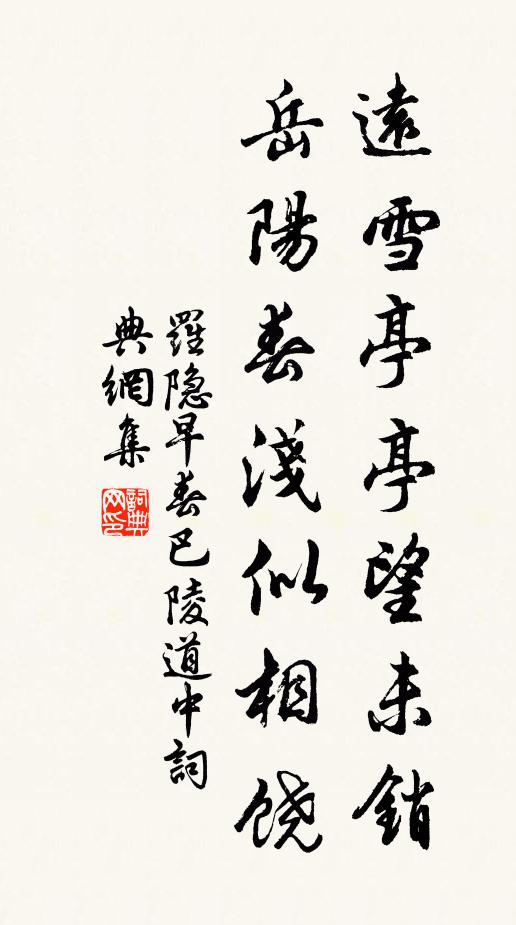 遠雪亭亭望未銷
岳陽春淺似相饒
羅隐早春巴陵道中詞
典網集
詞典
网印